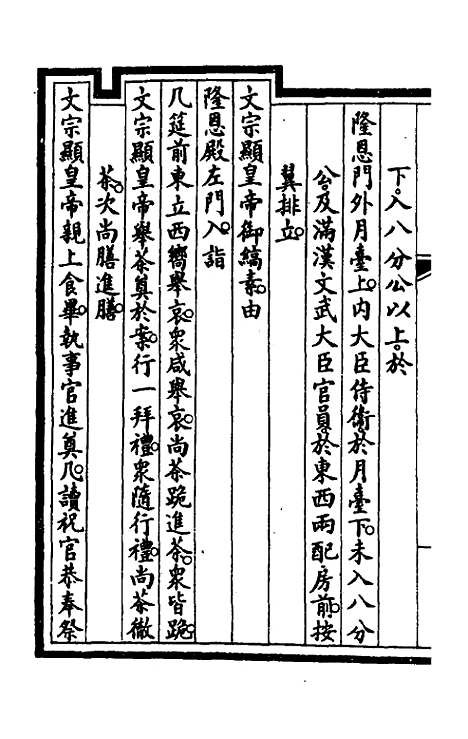 下。入八分公以上。於
隆恩門外月臺上。內大臣侍衛。於月臺下。未入八分
公。及滿漢文武大臣官員。於東西兩配房前。按
翼排立。
文宗顯皇帝御縞素。由
隆恩殿左門入。詣
几筵前東立西嚮舉哀。衆咸舉哀。尚茶跪進茶。衆皆跪。
文宗顯皇帝舉茶奠於案。行一拜禮。衆隨行禮。尚茶徹
茶。次尚膳進膳。
文宗顯皇帝親上食畢。執事官進奠几。讀祝官恭奉祭